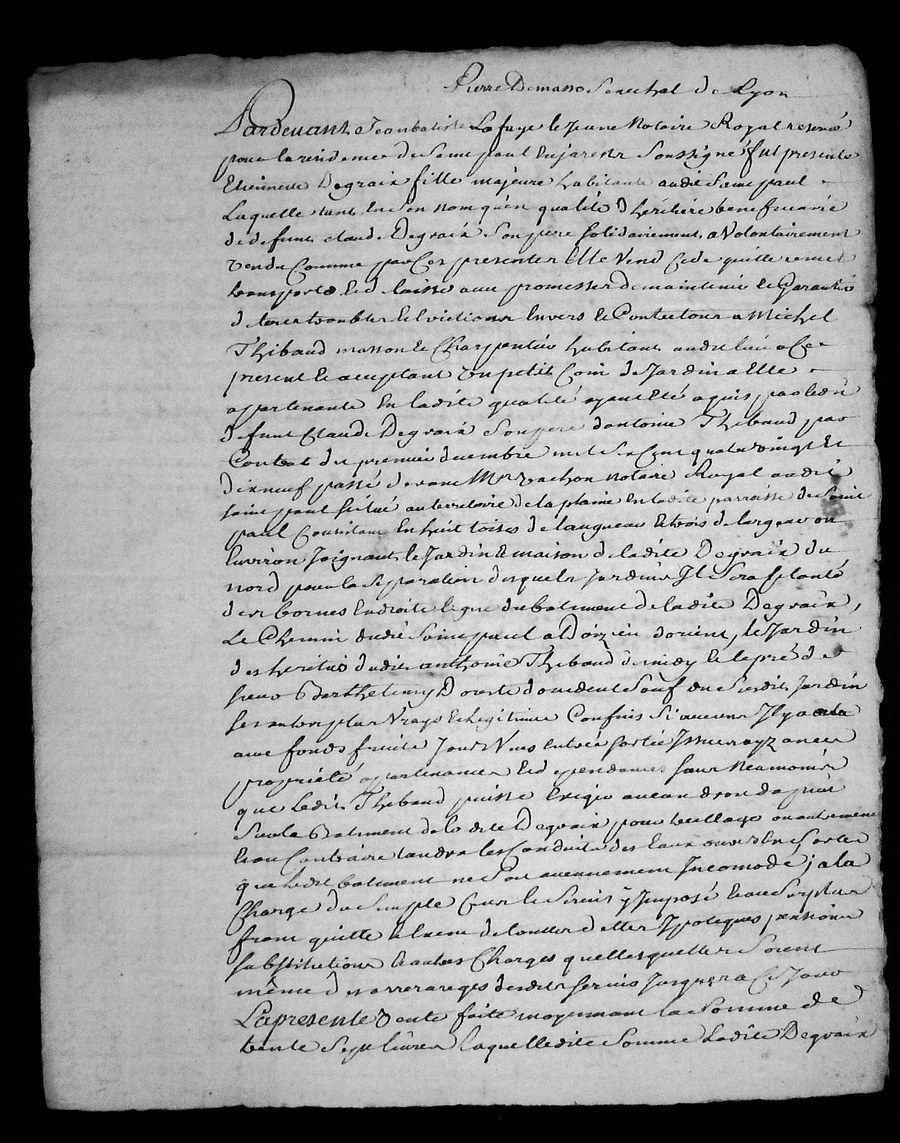 Pierre Demasso Senechal de Lyon
Pardevant Jeanbatiste Lafaye le Jeune Notaire Royal reservé
pour la residence de Saint paul Enjarestz Soussigné fut presente
Etiennette Degraix fille majeure habitante audit Saint paul
Laquelle tant En son nom qu'en qualité d'heritiere beneficiaire
de defunt claude Degraix son pere solidairement a Volontairement
vendu Comme par Ces presentes Elle vend Cede quitte remet
transporte Et delaisse avec promesse de maintenir Et Garantir
de tous troubles Et Evictions Envers Et Contre tous a Michel
Thibaud masson Et Charpentier habitant audit lieu a Ce
present Et acceptant un petit Coin de Jardin a Elle
appartenante En ladite qualité ayant Eté aquis par ledit
defunt Claude Degraix Son pere d'antoine Thibaud par
Contrat du premier decembre mil Six Cent quatre vingt Et
dixneuf passé devant Me Vachon Notaire Royal audit
saint paul situé au territoire de la plaine En ladite parroisse de Saint
paul Consistant En huit toises de longueur Et trois de largeur ou
Environ Joignant le Jardin Et maison de ladite Degraix du
nord pour la Separation desquels Jardins Il Sera planté
des bornes En droite ligne du batiment de ladite Degraix,
Le Chemin dudit Saint paul a Doizieu d'orient, le Jardin
des heritiers dudit anthoine Thibaud de midy Et le pré de
sieur Barthelemy D'occident Sauf du Susdit Jardin
ses autres plus Vrays Et Legitimes Confins Si aucuns Il y a
avec fonds fruits Jours Vues Entrée sortie
proprieté appartenances Et dependances sans Neamoins
que Ledit Thibaud puisse Exiger aucun droit
Sur le Batiment de la dite Degraix pour ou autrement
Et au Contraire tiendra les Conduits des Eaux ouverts En Sorte
que Ledit batiment ne Soit aucunement Incomodé, a la
Charge du Simple Cens Et Servis y Imposé Et au Surplus
franc quitte Et Exempt de toutes dettes Hypoteques pensions
substitutions Et autres Charges quelles quelles Soient
même des arrerages desdits servis Jusques a Ce Jour
La presente vente faite moyennant la Somme de
trente Sept livres laquelle dite Somme Ladite Degraix